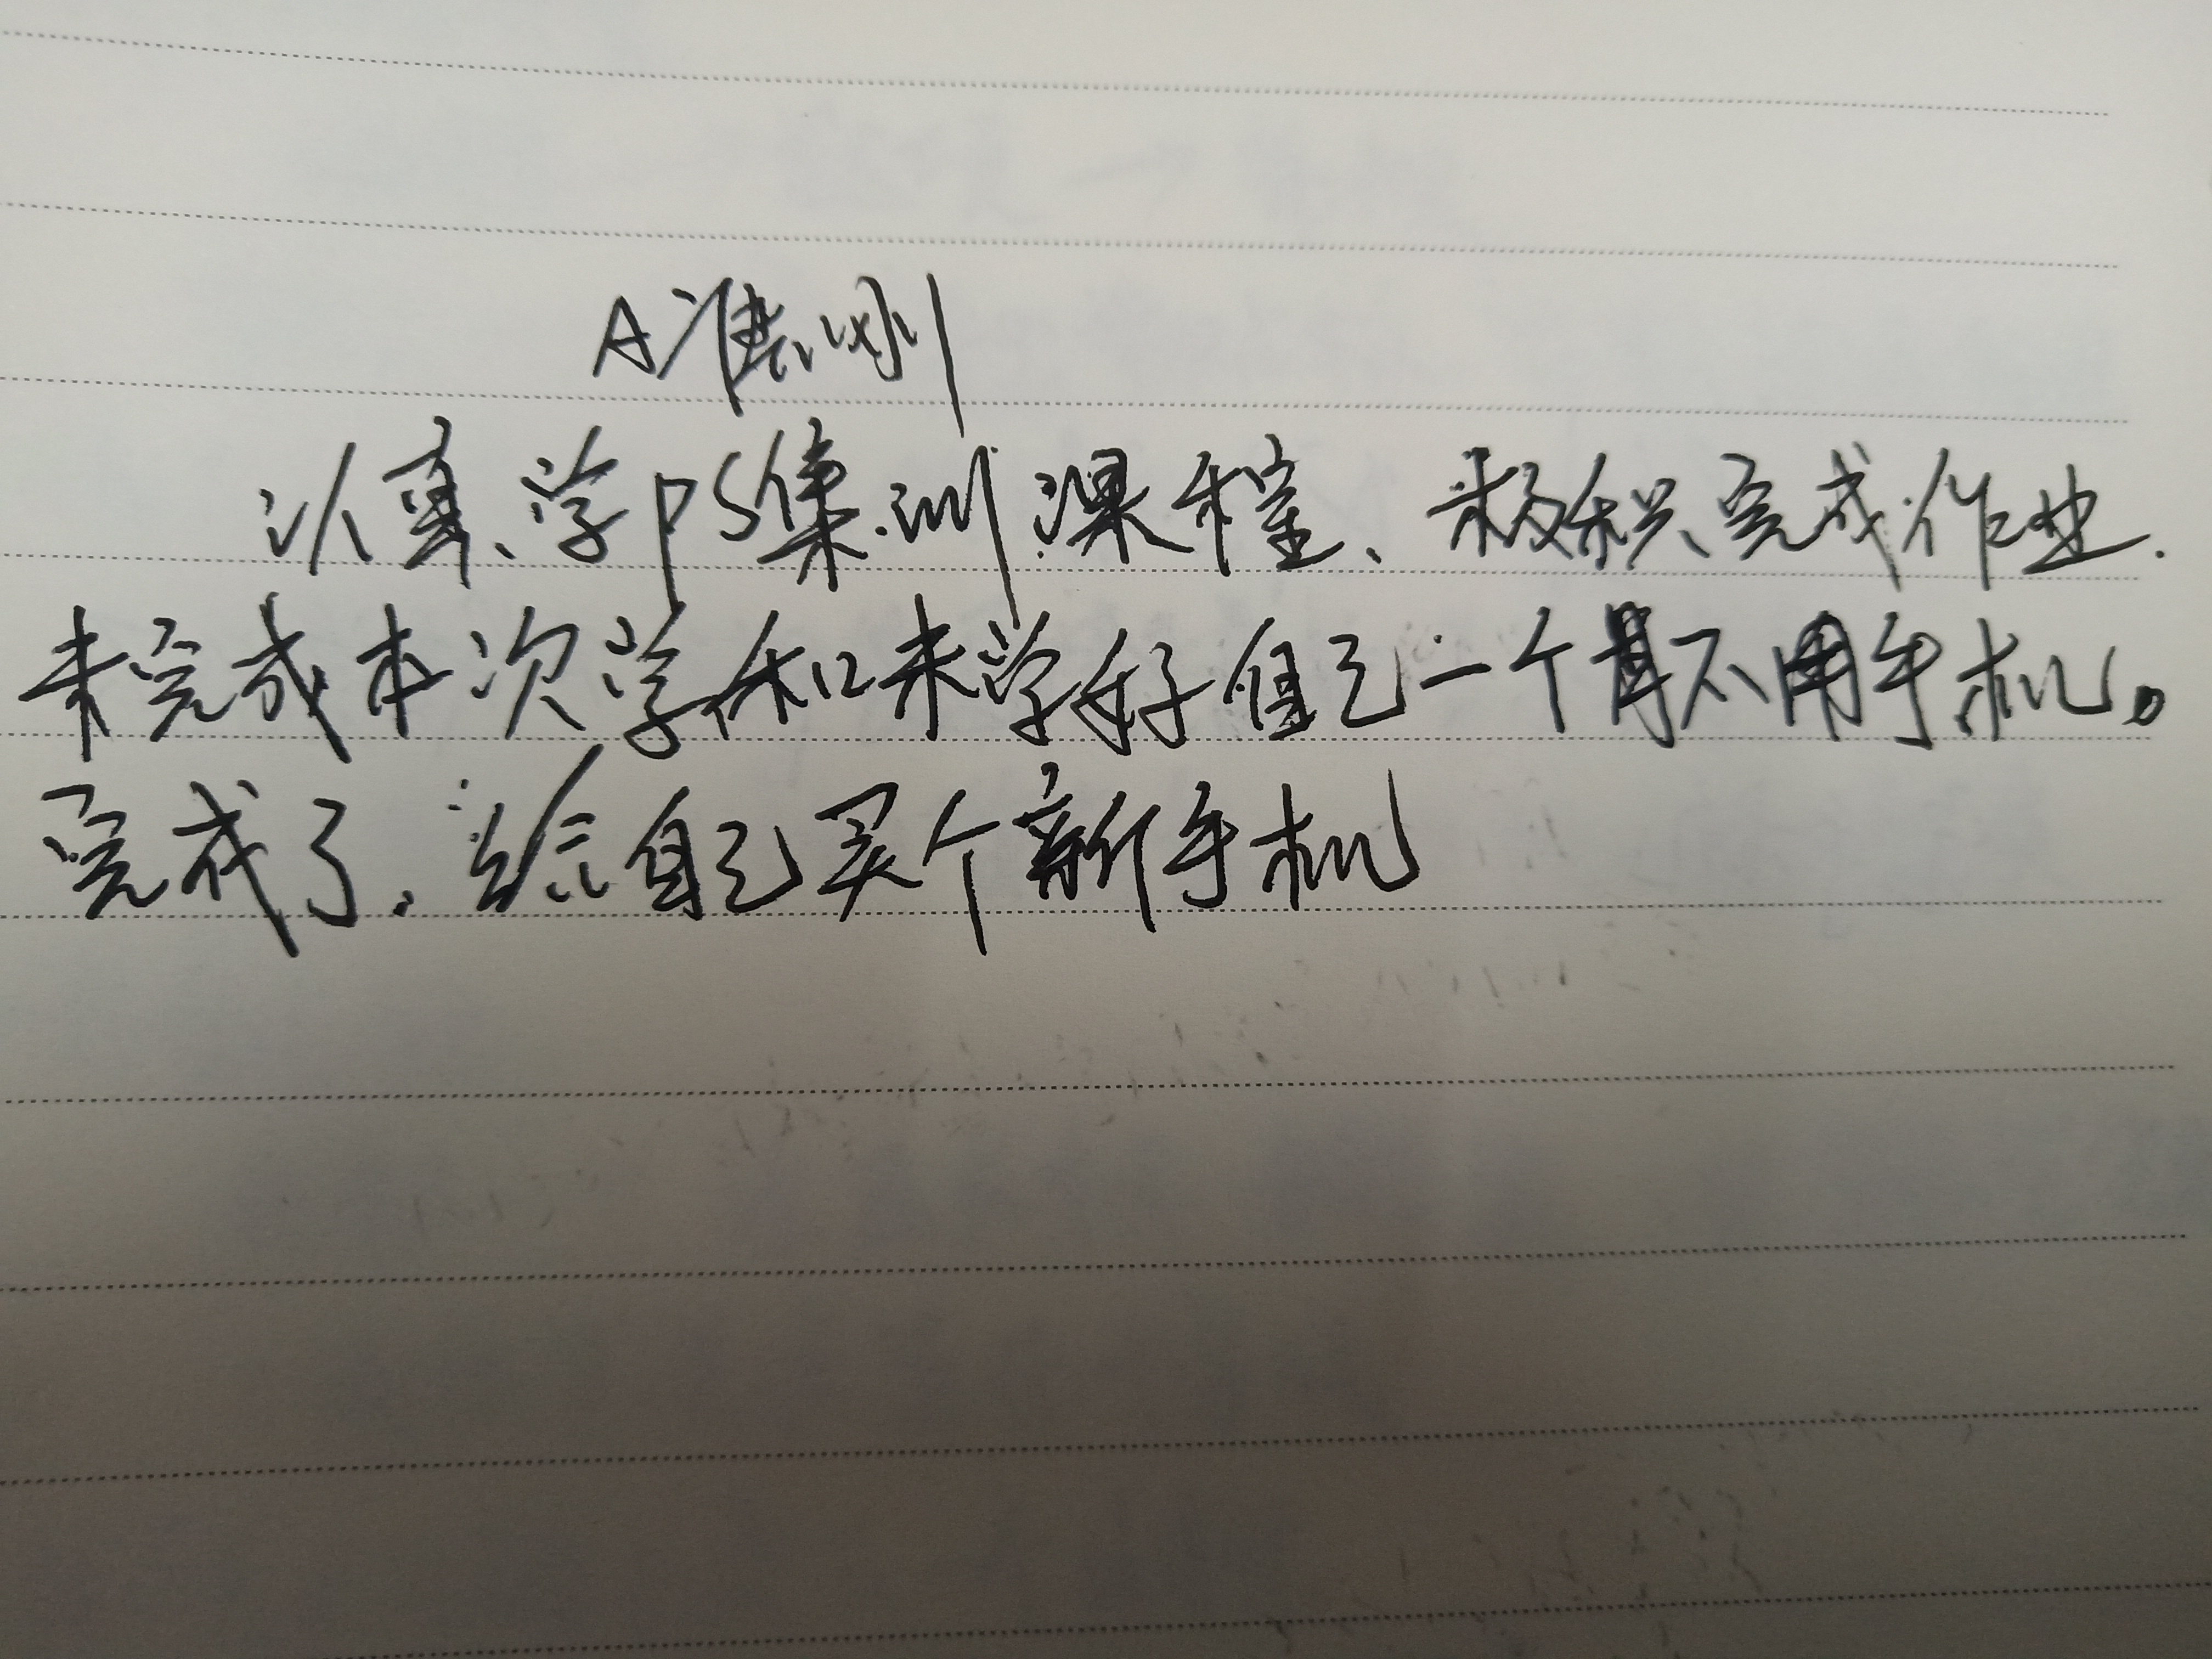 认真学PS集训课程、积极完成作业.
未完成本次学和未学好自己一个月不用手机。
完成了.给自己买个新手机